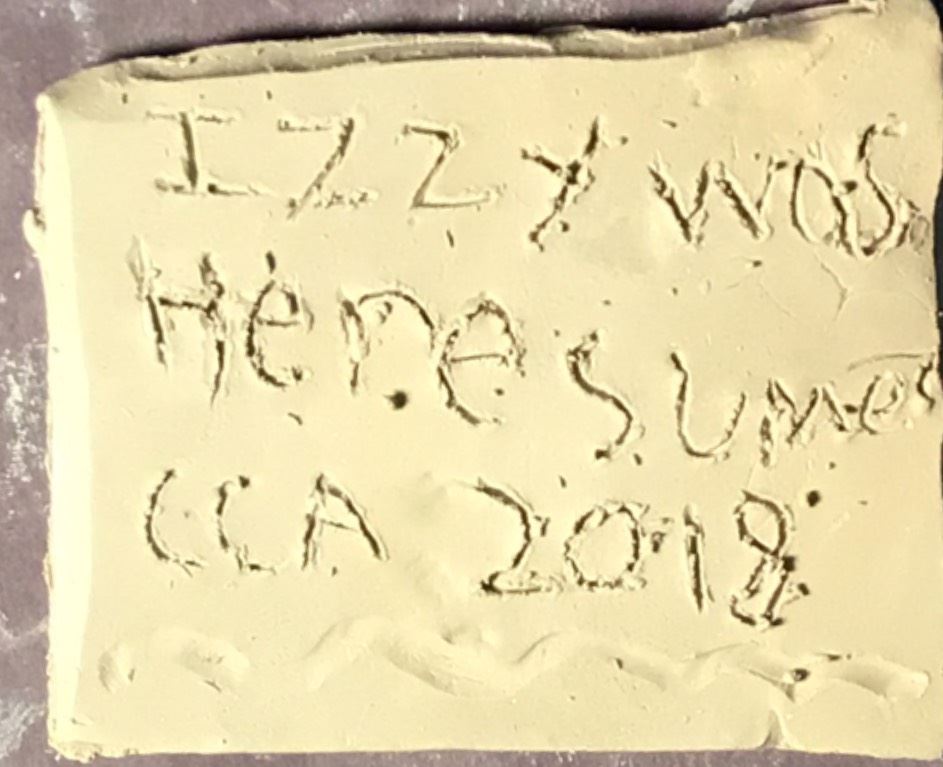 IZZY was
Here Sumer
CCA 2018